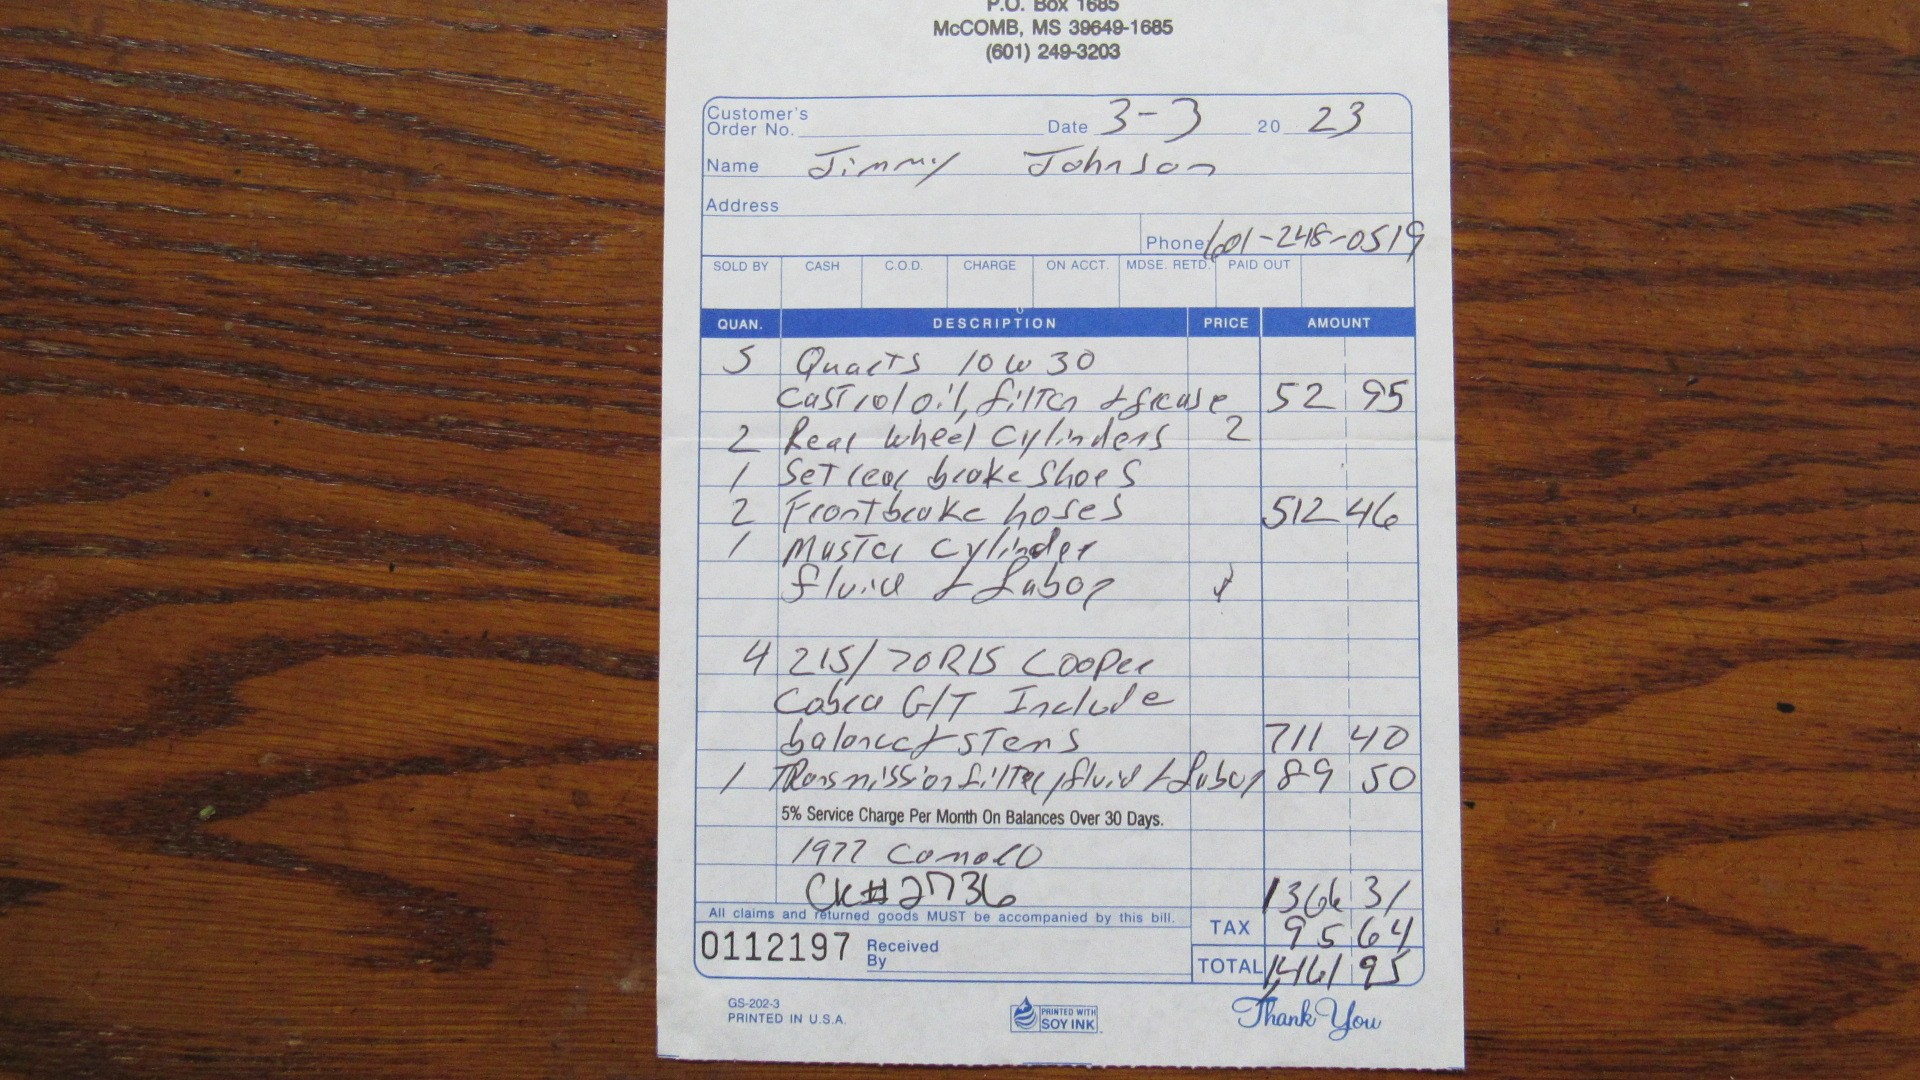 P.O. Box 1685
McCOMB, MS 39649-1685
(601) 249-3203
Customer's
Order No. Date 3-3 20 23
Name Jimmy Johnson
Address
Phone 601-248-0519
SOLD BY CASH C.O.D. CHARGE ON ACCT. MDSE. RETD. PAID OUT
QUAN. DESCRIPTION PRICE AMOUNT
5 Quarts 10w30
Castrol oil, filter & grease 52 95
2 Rear wheel cylinders 2
1 Set rear brake shoes
2 Front brake hoses 512 46
1 Master cylinder
fluid & Labor
4 215/70R15 Cooper
Cobra G/T Include
balance & stems 711 40
1 Transmission filter, fluid & Labor 89 50
5% Service Charge Per Month On Balances Over 30 Days.
1977 Camaro
CK#2736 1366 31
All claims and returned goods MUST be accompanied by this bill.
TAX 95 64
0112197 Received
By
TOTAL 1461 95
GS-202-3
PRINTED IN U.S.A.
PRINTED WITH
SOY INK
Thank You